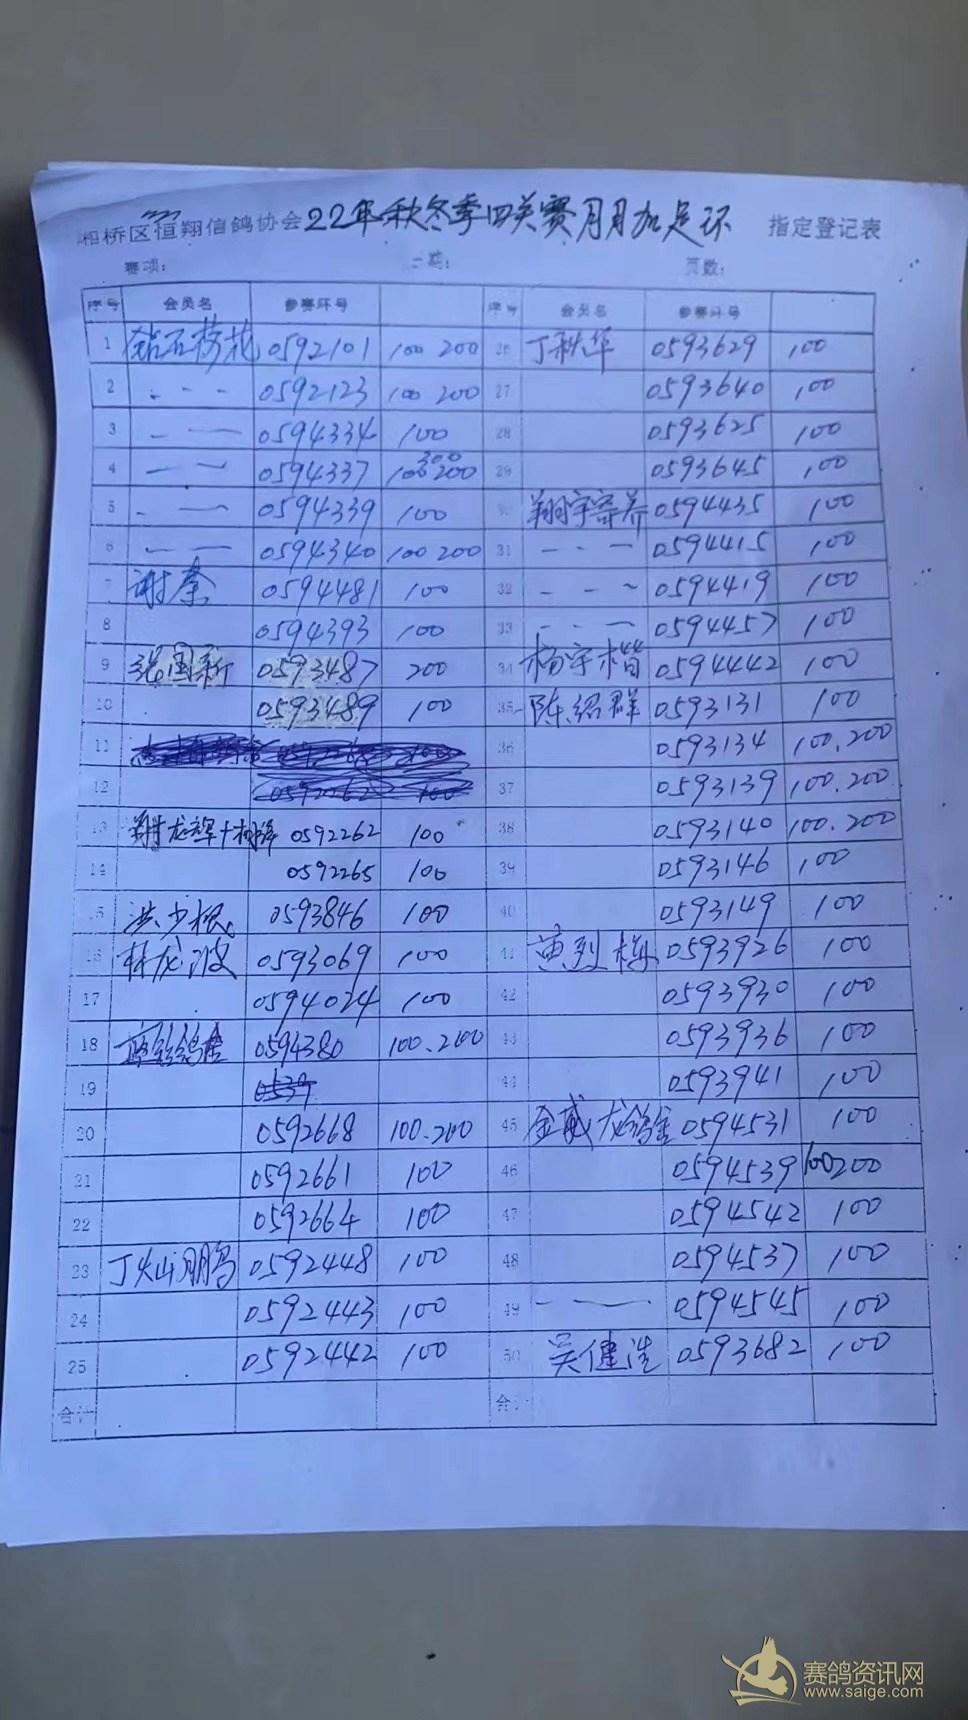 湘桥区恒翔信鸽协会22年秋冬季四关赛月月加足环 指定登记表
赛项: 日期: 页数:
序号 会员名 参赛环号 序号 会员名 参赛环号
1 钻石 0592101 100 200 26 丁秋华 0593629 100
2 - - - 0592123 100 200 27 0593640 100
3 - — 0594334 100 28 0593625 100
4 — — 0594337 100 300 200 29 0593645 100
5 - — 0594339 100 30 翔宇寄养 0594435 100
6 — — 0594340 100 200 31 - - - 0594415 100
7 谢秦 0594481 100 32 - - ~ 0594419 100
8 0594393 100 33 - - - 0594457 100
9 张国新 0593487 200 34 杨宇楷 0594442 100
10 0593489 100 35 陈绍群 0593131 100
11 36 0593134 100.200
12 0592262 100 37 0593139 100.200
13 龙辉+ 0592262 100 38 0593140 100.200
14 0592265 100 39 0593146 100
15 洪少根 0593846 100 40 0593149 100
16 林龙波 0593069 100 41 黄烈梅 0593926 100
17 0594024 100 42 0593930 100
18 鸽舍 0594380 100.200 43 0593936 100
19 0539 44 0593941 100
20 0592668 100.200 45 金威龙鸽舍 0594531 100
21 0592661 100 46 0594539 100 200
22 0592664 100 47 0594542 100
23 丁灿鹏 0592448 100 48 0594537 100
24 0592443 100 49 — — 0594545 100
25 0592442 100 50 吴健浩 0593682 100
合计 合计
赛鸽资讯网
www.saige.com